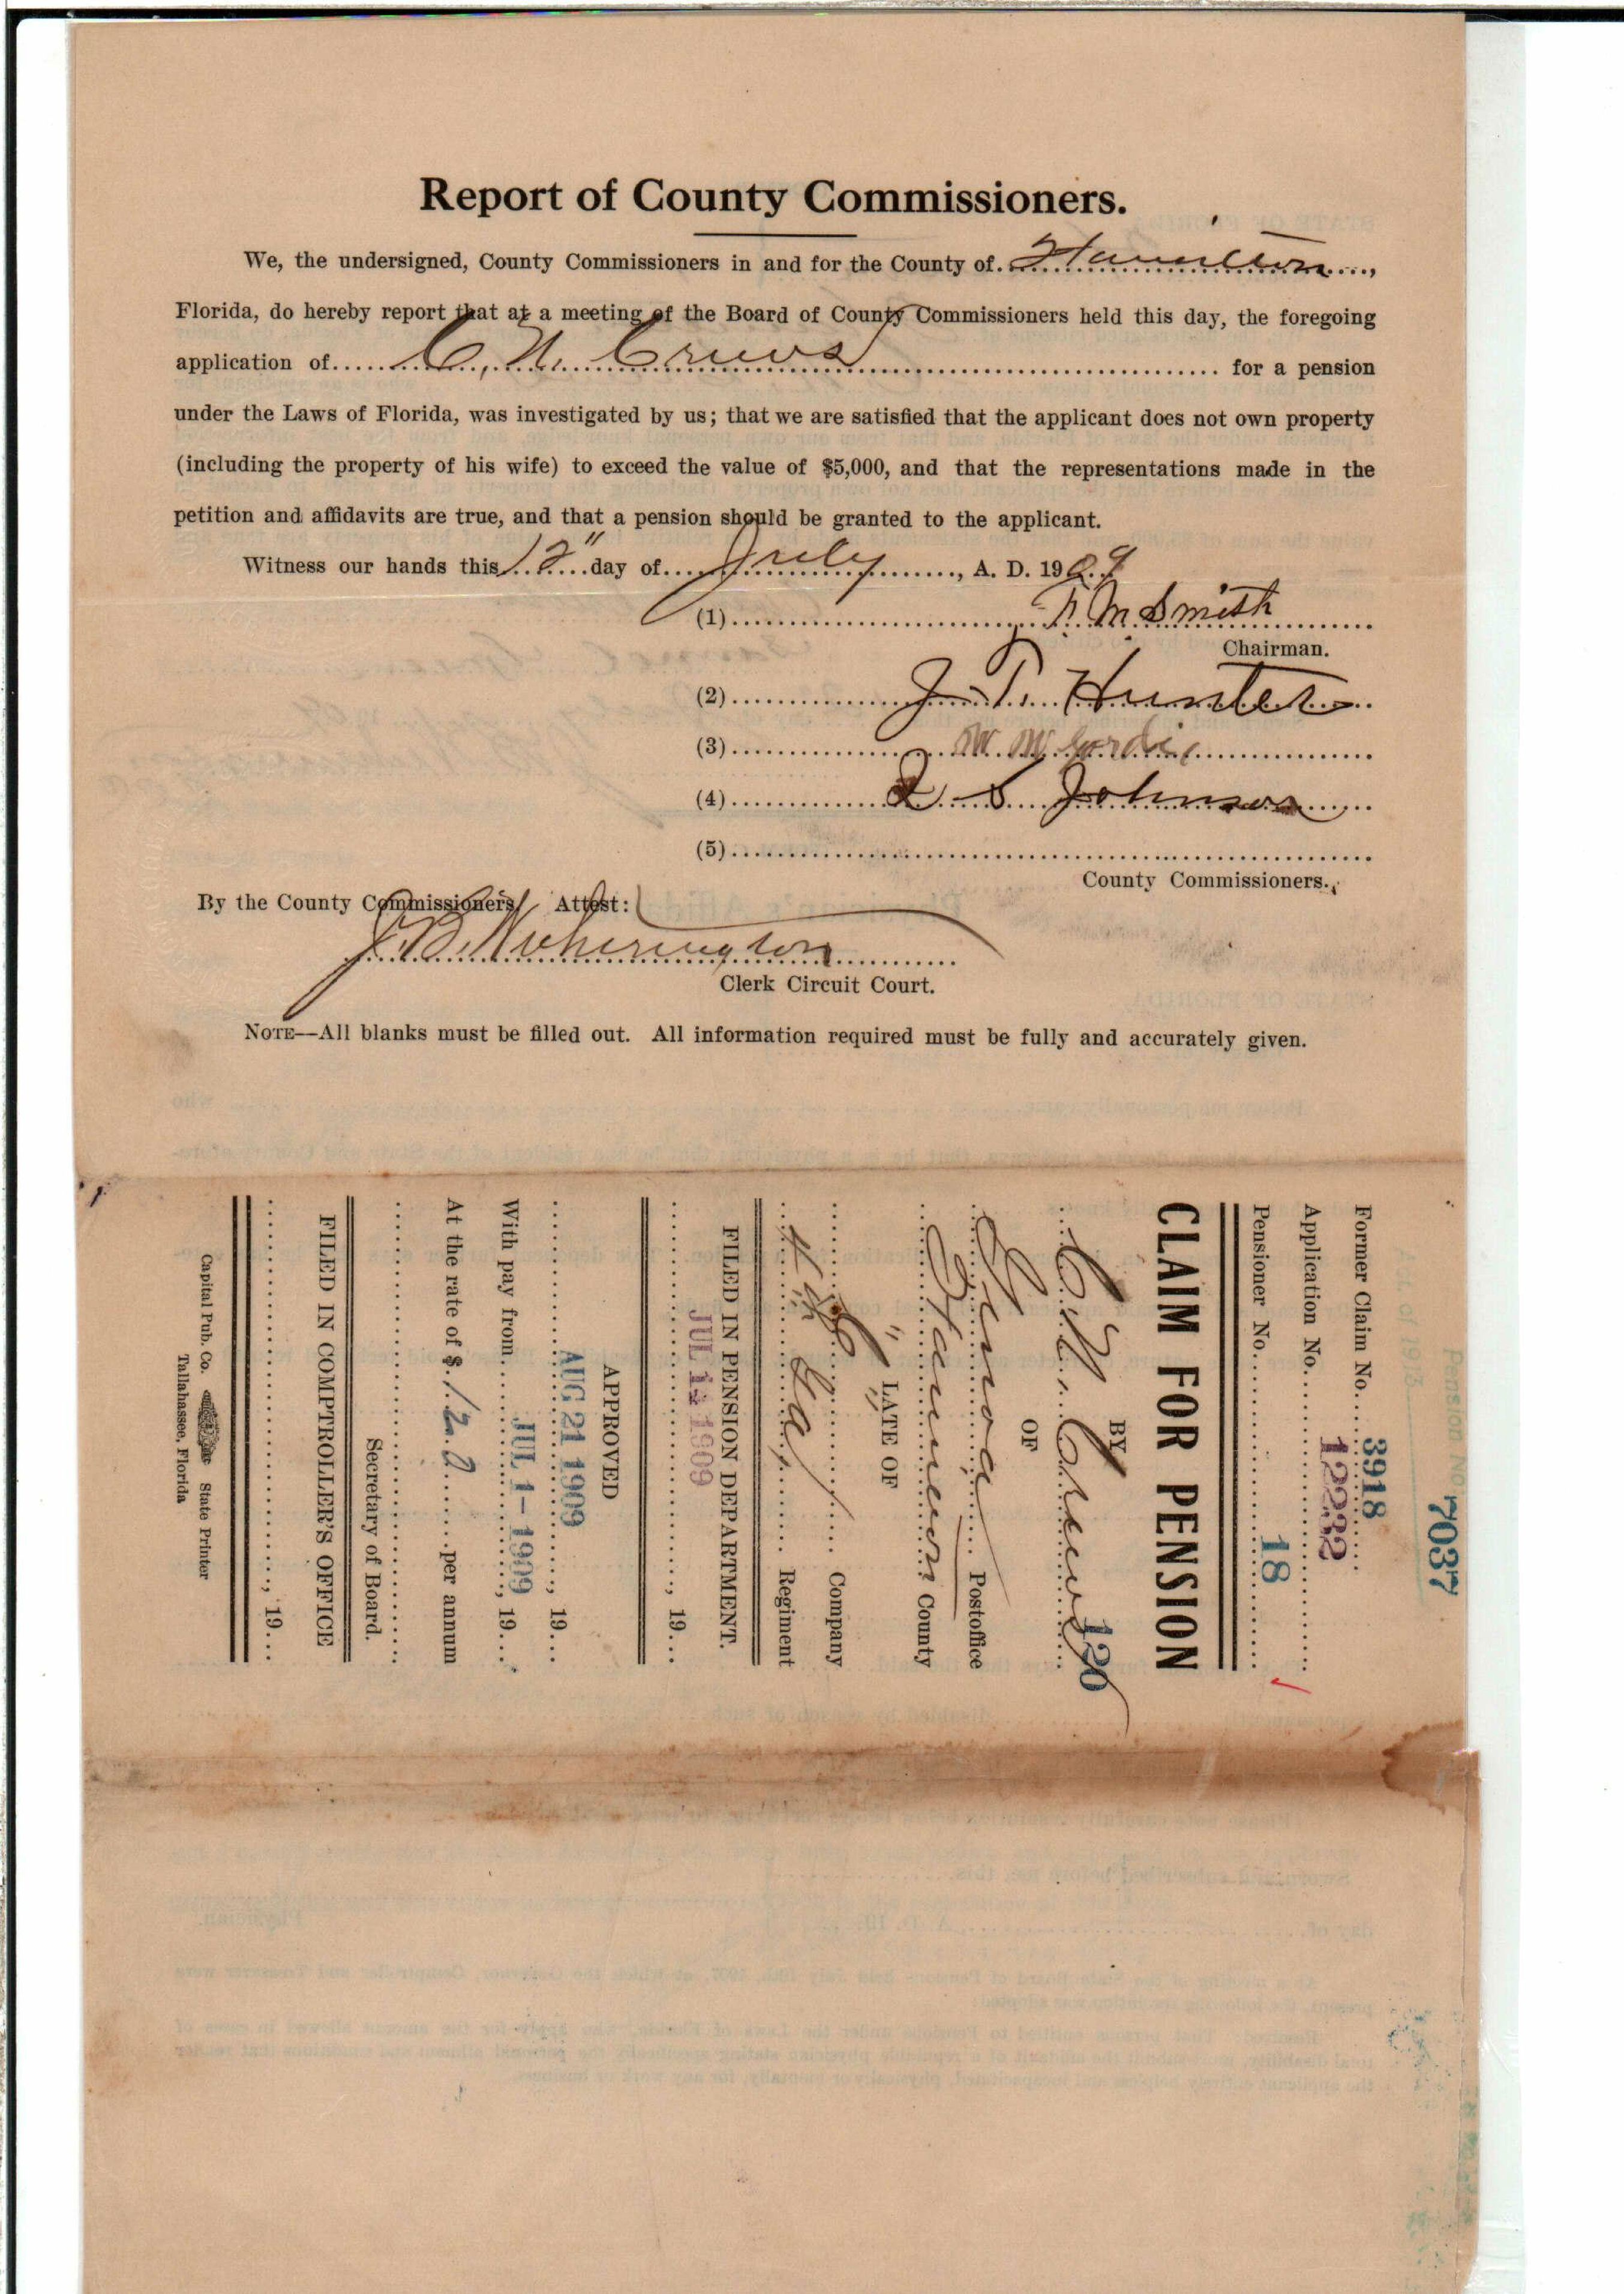 Report of County Commissioners.
We, the undersigned, County Commissioners in and for the County of. Hamilton ....,
Florida, do hereby report that at a meeting of the Board of County Commissioners held this day, the foregoing
application of..... C. N. Crews ..... for a pension
under the Laws of Florida, was investigated by us; that we are satisfied that the applicant does not own property
(including the property of his wife) to exceed the value of $5,000, and that the representations made in the
petition and affidavits are true, and that a pension should be granted to the applicant.
Witness our hands this 12" day of.... July ......, A. D. 1909
(1)..... M Smith
Chairman.
(2)..... J. T. Hunter
(3)..... W. W.
(4)..... S Johnson
(5).....
County Commissioners.,
By the County Commissioners, Attest:
J. B. Witherington
Clerk Circuit Court.
NOTE—All blanks must be filled out. All information required must be fully and accurately given.
Pension No. 7037
Act of 1913
Former Claim No..... 3918
Application No..... 12232
Pensioner No..... 18
CLAIM FOR PENSION
BY
C. N. Crews
120
OF
Genoa ..... Postoffice
Hamilton County
LATE OF
" "
..... Company
4th Ga, ..... Regiment
FILED IN PENSION DEPARTMENT.
JUL 14 1909 ....., 19...
APPROVED
AUG 21 1909 ....., 19...
With pay from..... JUL 1- 1909 ....., 19...
At the rate of $. 120. ..... per annum
Secretary of Board.
FILED IN COMPTROLLER'S OFFICE
....., 19...
Capital Pub. Co. State Printer
Tallahassee, Florida